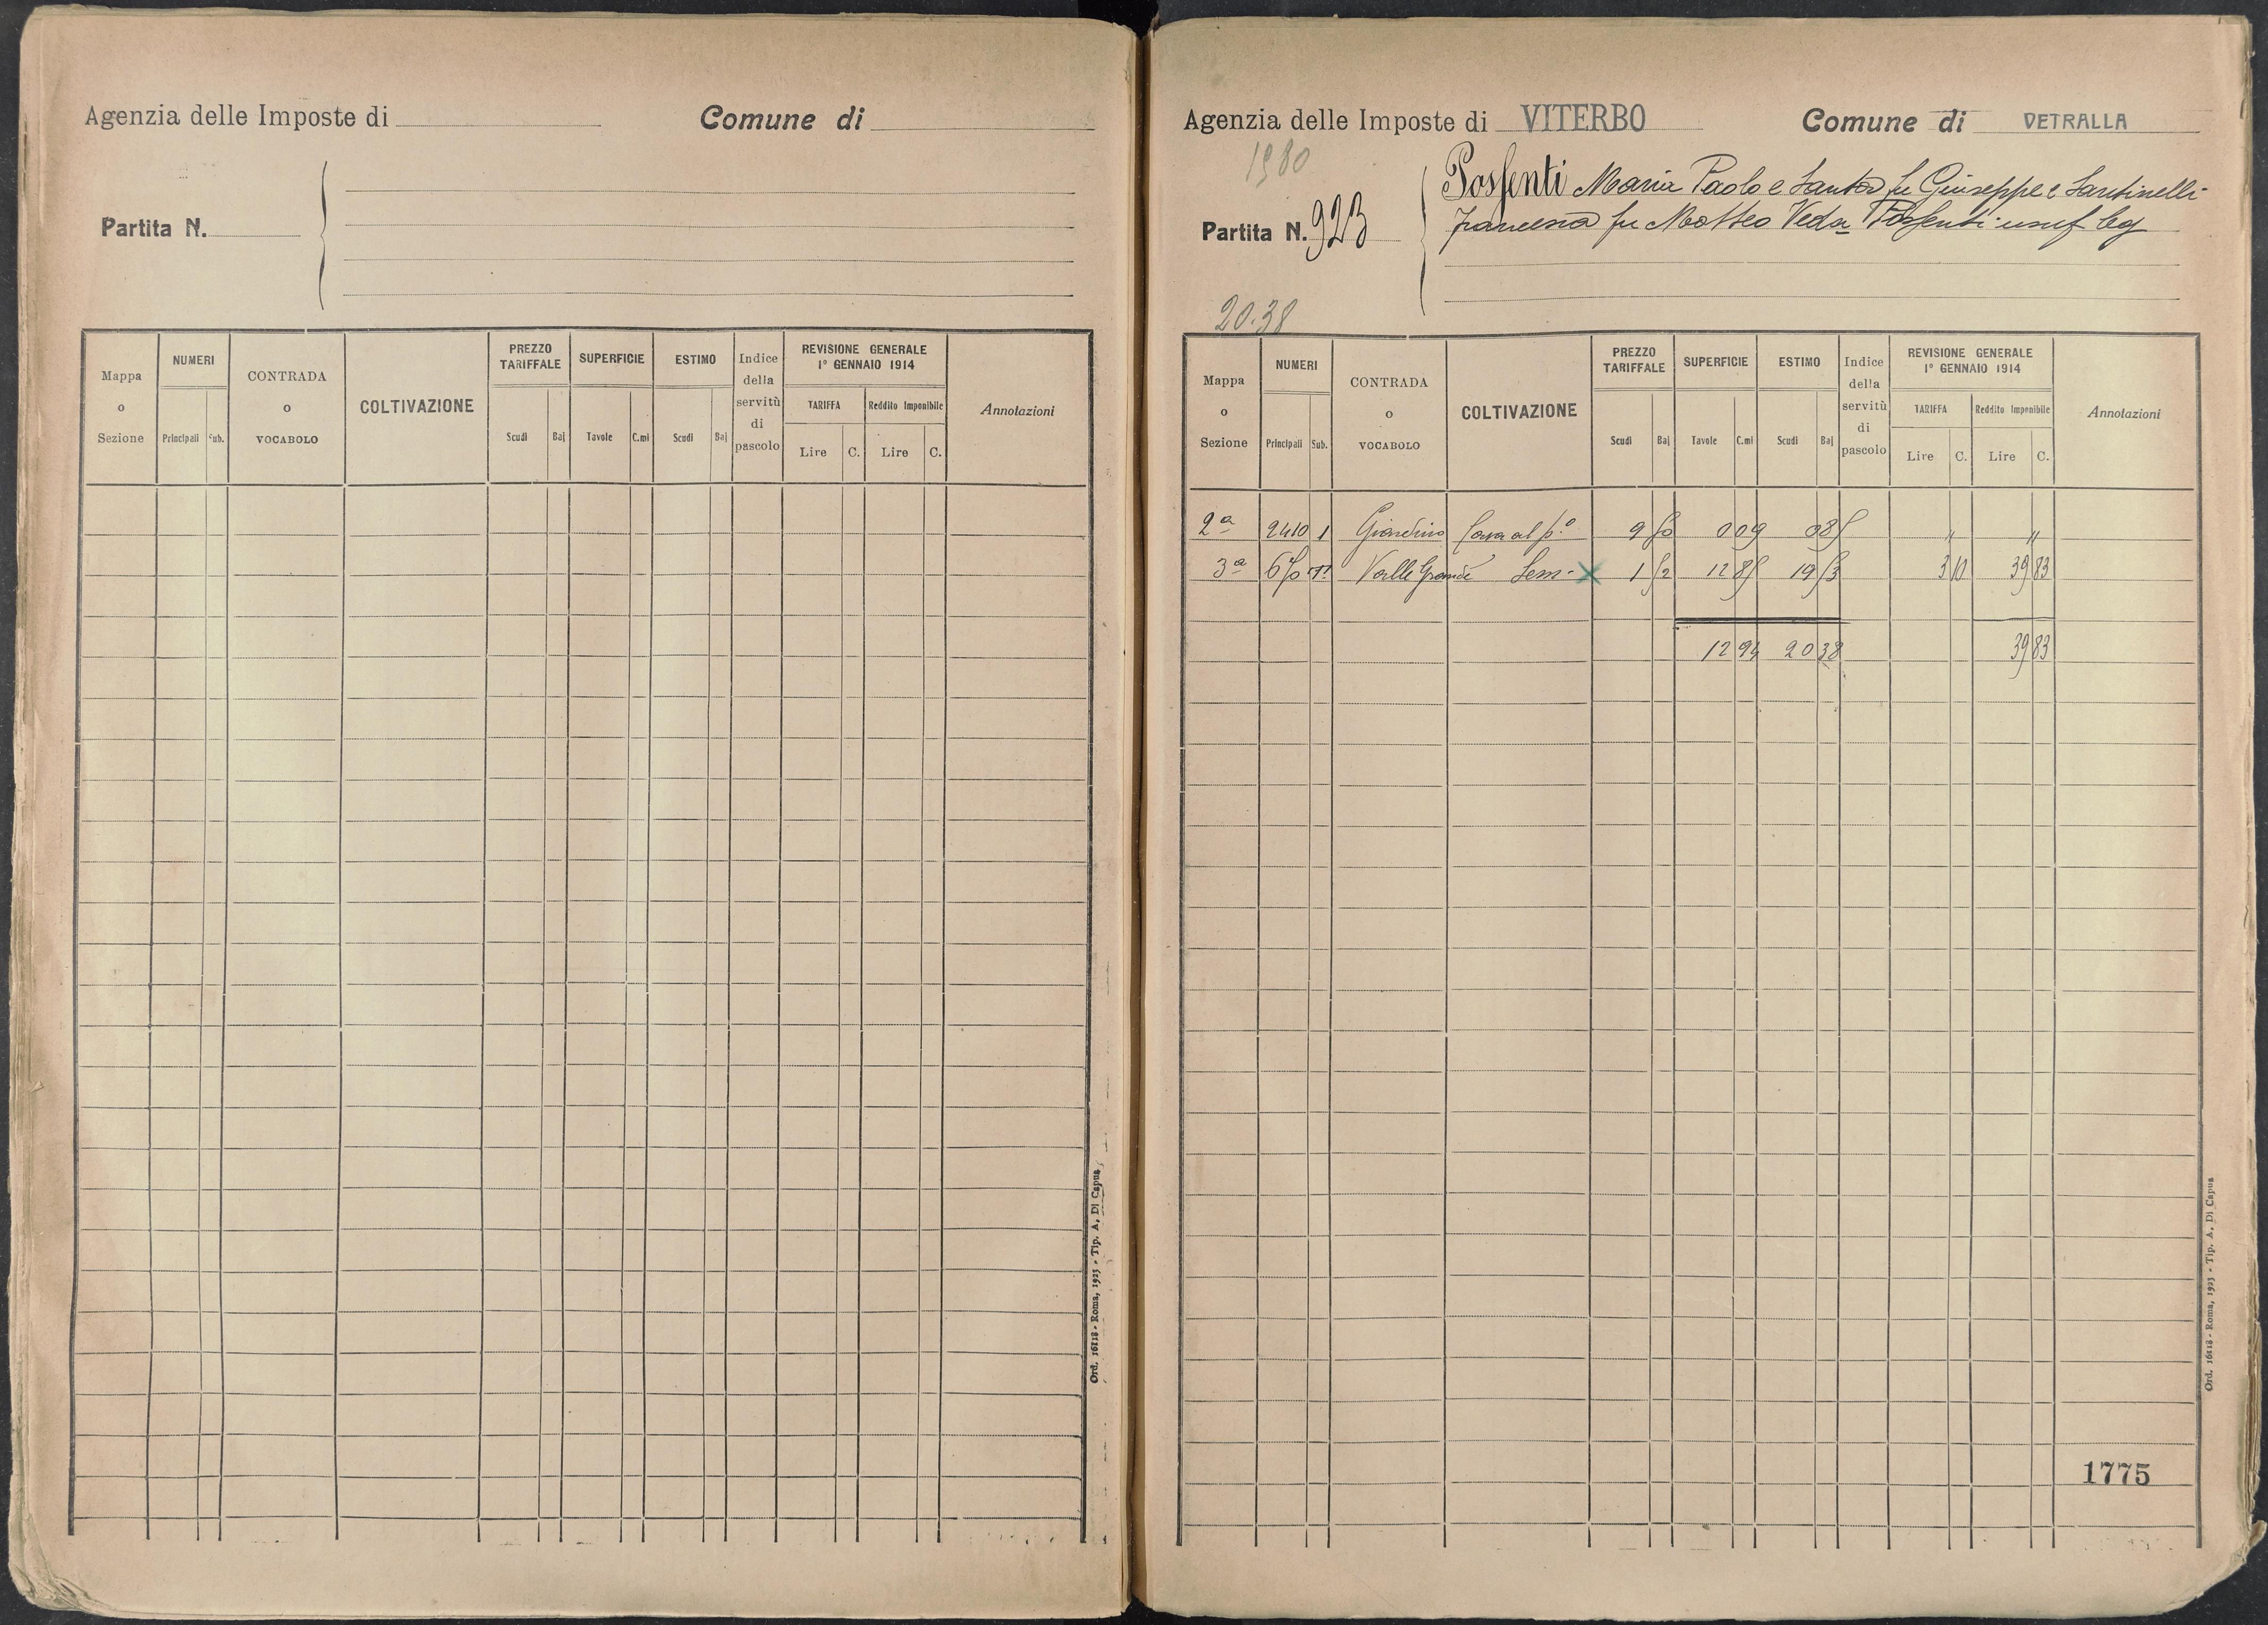 Agenzia delle Imposte di
Comune di
Partita N.
Mappa o Sezione
NUMERI
Principali
Sub.
CONTRADA o VOCABOLO
COLTIVAZIONE
PREZZO TARIFFALE
Scudi
Baj
SUPERFICIE
Tavole
C.mi
ESTIMO
Scudi
Baj
Indice della servitù di pascolo
REVISIONE GENERALE
1° GENNAIO 1914
TARIFFA
Reddito Imponibile
Lire
C.
Lire
C.
Annotazioni
Ord. 16118 - Roma, 1923 - Tip. A. Di Capua
Agenzia delle Imposte di VITERBO
Comune di VETRALLA
1980
Partita N. 923
Possenti Maria Paolo e Santa fu Giuseppe e Santinelli
Francesca fu Matteo Ved.a Possenti usuf leg
20.38
Mappa o Sezione
NUMERI
Principali
Sub.
CONTRADA o VOCABOLO
COLTIVAZIONE
PREZZO TARIFFALE
Scudi
Baj
SUPERFICIE
Tavole
C.mi
ESTIMO
Scudi
Baj
Indice della servitù di pascolo
REVISIONE GENERALE
1° GENNAIO 1914
TARIFFA
Reddito Imponibile
Lire
C.
Lire
C.
Annotazioni
2a 2410 1 Giardino 9 50 0 09 0 85 " "
3a 650 Valle Grande Sem. X 1 52 12 85 19 53 3 10 39 83
12 94 20 38 39 83
1775
Ord. 16118 - Roma, 1923 - Tip. A. Di Capua